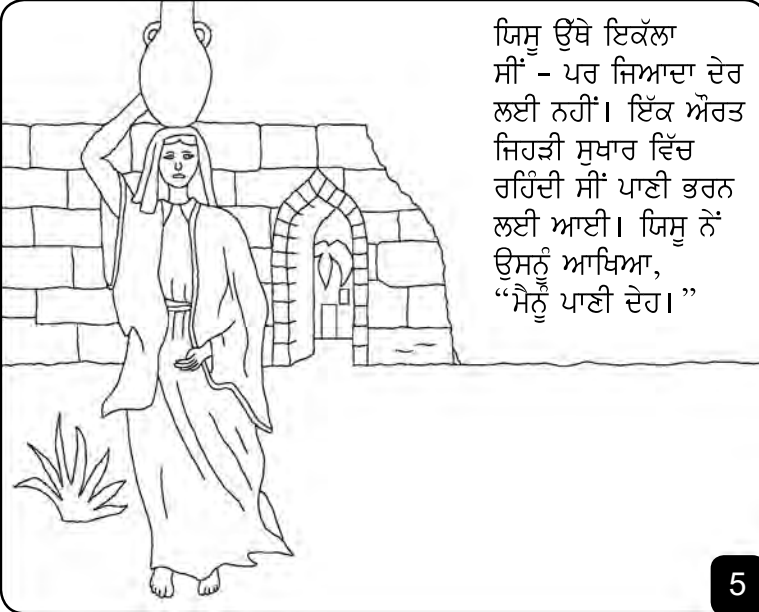 ਯਿਸੂ ਉੱਥੇ ਇਕੱਲਾ
ਸੀਂ – ਪਰ ਜਿਆਦਾ ਦੇਰ
ਲਈ ਨਹੀਂ। ਇੱਕ ਔਰਤ
ਜਿਹੜੀ ਸੁਖਾਰ ਵਿੱਚ
ਰਹਿੰਦੀ ਸੀਂ ਪਾਣੀ ਭਰਨ
ਲਈ ਆਈ। ਯਿਸੂ ਨੇਂ
ਉਸਨੂੰ ਆਖਿਆ,
“ਮੈਨੂੰ ਪਾਣੀ ਦੇਹ।”
5